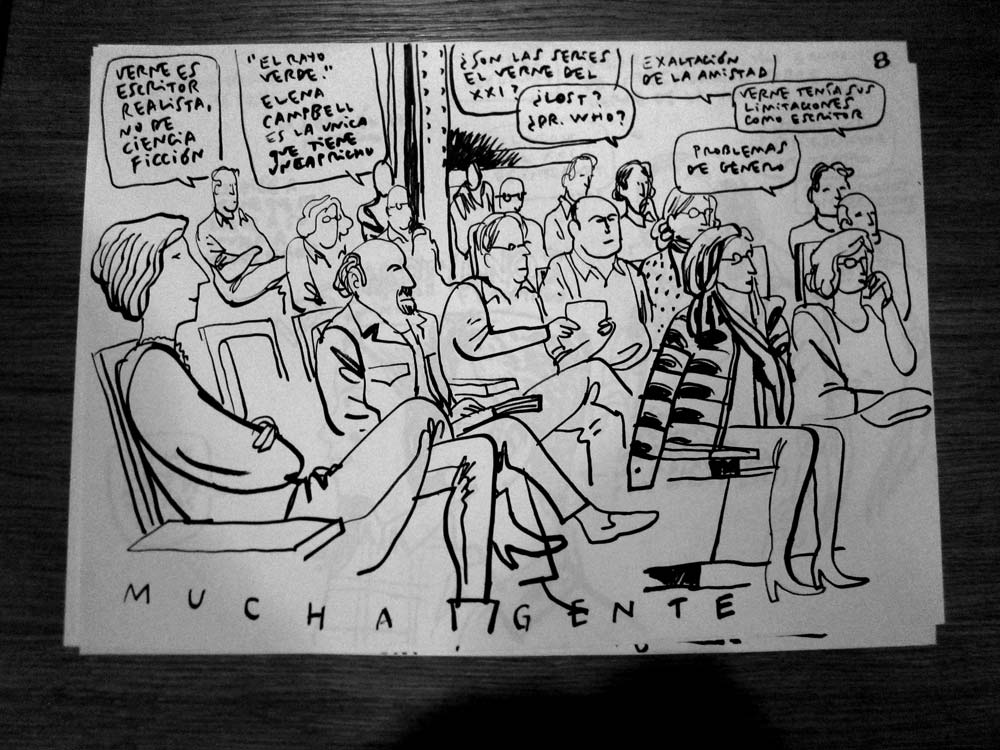 VERNE ES
ESCRITOR
REALISTA,
NO DE
CIENCIA
FICCIÓN
"EL RAYO
VERDE."
ELENA
CAMPBELL
ES LA UNICA
QUE TIENE
UN CAPRICHO
¿SON LAS SERIES
EL VERNE DEL
XXI?
¿LOST?
¿DR. WHO?
EXALTACIÓN
DE LA AMISTAD
VERNE TENÍA SUS
LIMITACIONES
COMO ESCRITOR
PROBLEMAS
DE GÉNERO
8
MUCHA GENTE